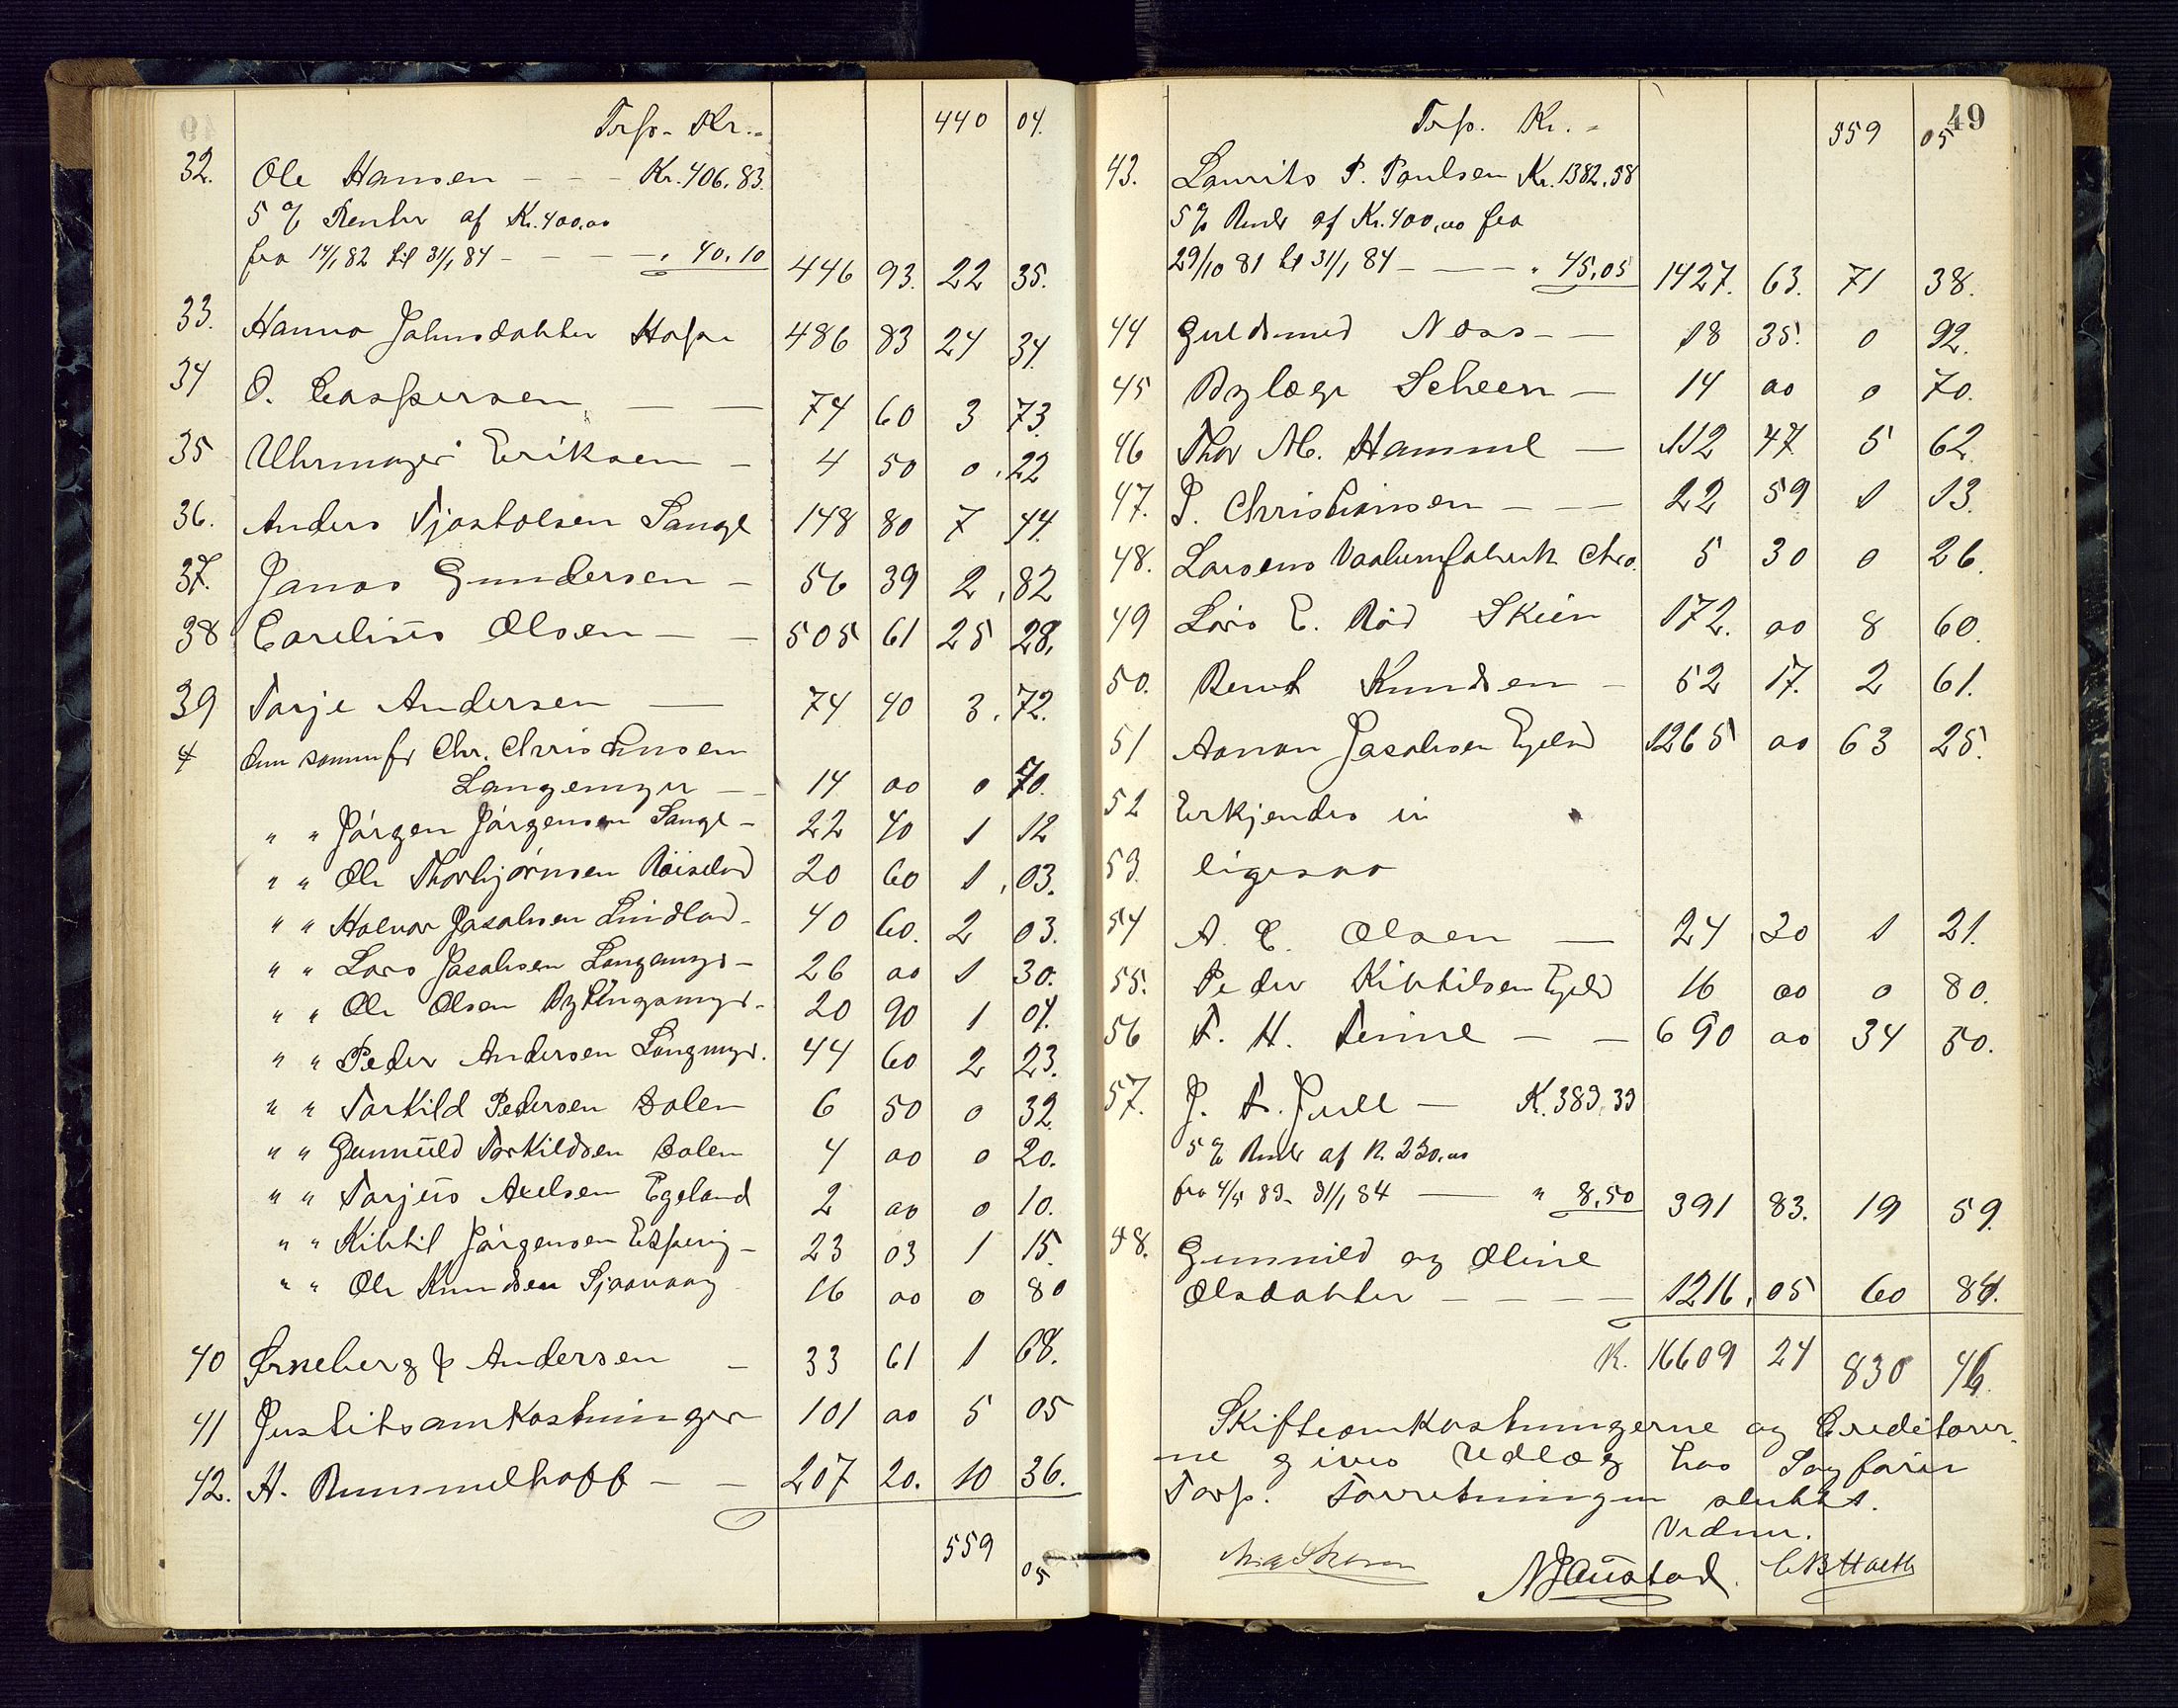 Trsp. Kr. 440 04.
32. Ole Hansen - - - Kr. 406,83.
5 % Renter af Kr. 400,00
fra 14/1 82 til 31/1 84 - - - - " 40,10 446 93. 22 35.
33. Hanna Johnsdatter Hope 486 83 24 34.
34 O. Caspersen - - 74 60 3 73.
35 Uhrmager Eriksen - 4 50 0 22
36. Anders Tjostolsen Lauge 148 80 7 44.
37. Jonas Gundersen - 56 39 2 82
38 Carelius Olsen - - 505 61 25 28.
39 Tarje Andersen - 74 40 3 72.
4 den samme for Chr. Christensen
Langemyr - 14 00 0 70.
" " Jørgen Jørgensen Lauge - 22 40 1 12
" " Ole Thorbjørnsen Röiseland 20 60 1 03.
" " Halvor Jacobsen Lindland - 40 60. 2 03.
" " Lars Jacobsen Langemyr - 26 00 1 30.
" " Ole Olsen 20 90 1 04.
" " Peder Andersen Langemyr. 44 60 2 23.
" " Torkild Pedersen Dalen 6 50 0 32
" " Gunnuld Torkildsen Dalen 4 00 0 20.
" " Tarjus Axelsen Egeland 2 00 0 10.
" " Kittil Jørgensen Espering - 23 03 1 15.
" " Ole Knudsen 16 00 0 80
40 Ørneberg & Andersen - 33 61 1 68.
41 Justitsomkostninger 101 00 5 05
42. H. Rummelhoff - - 207 20. 10 36.
559 05
49
Trsp. Kr. - 559 05
43. Laurits P. Paulsen Kr. 1382,58
5 % Renter af Kr. 400,00 fra
29/10 81 til 31/1 84 - - - " 45,05 1427. 63. 71 38.
44 Guldsmed Næss - - 18 35. 0 92.
45 Bylæge Scheen - 14 00 0 70.
46 Thor M. Hammel - 112 47 5 62
47. J. Christiansen - - - 22 59 1 13.
48. Larsens Vaabenfabrik Chra. 5 30 0 26.
49 Lars C. Röd Skien 172. 00 8 60.
50. Bernt Knudsen - 52 17. 2 61.
51 Aanon Jacobsen Egeld 1265 00 63 25.
52 Erkjendes ei
53 ligesaa
54 A. C. Olsen - 24 20 1 21.
55. Peder Kittilsen Egeld 16 00 0 80.
56 T. H. Teine - - 690 00 34 50.
57. J. A. Juell - K. 383,33
5 % Renter af K. 230,00
fra 4/5 83 - 31/1 84 - " 8,50 391 83. 19 59.
58. Gunnild og Oline
Olsdatter - - - - 1216, 05 60 80.
K. 16609 24 830 46.
Skifteomkostningerne og Creditorer-
ne gives Udlæg hos Sagfører
Torp. Forretningen sluttet.
Vidner.
NJAustad. CB Hæth